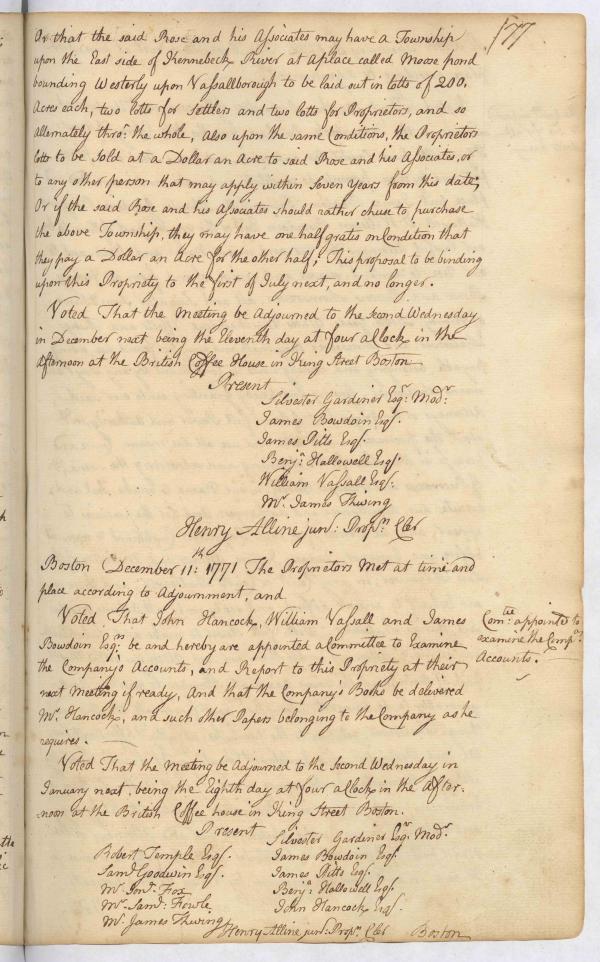 177
Or that the said Rose and his Associates may have a Township
upon the East side of Kennebeck River at a place called Moose pond
bounding Westerly upon Vassallborough to be laid out in lotts of 200.
Acres each, two lotts for Settlers and two lotts for Proprietors, and so
alternately thro: the whole, also upon the same Conditions, the Proprietors
lotts to be sold at a Dollar an Acre to said Rose and his Associates, or
to any other person that may apply within Seven Years from this date;
Or if the said Rose and his Associates should rather chuse to purchase
the above Township, they may have one half gratis on Condition that
they pay a Dollar an Acre for the other half; This proposal to be binding
upon this Propriety to the first of July next, and no longer.
Voted That the Meeting be Adjourned to the Second Wednesday
in December next being the Eleventh day at four aClock in the
Afternoon at the British Coffee House in King Street Boston
Present
Silvester Gardiner Esqr: Modr:
James Bowdoin Esqs.
James Pitts Esqs.
Benja: Hallowell Esqs.
William Vassall Esqs.
Mr. James Thwing
Henry Alline junr: Proprs. Cler
Boston December 11th: 1771 The Proprietors Met at time and
place according to Adjournment, and
Voted, That John Hancock, William Vassall and James
Bowdoin Esqrs: be and hereby are appointed a Committee to Examine
the Company's Accounts, and Report to this Propriety at their
next Meeting if ready, And that the Company's Books be delivered
Mr. Hancock, and such other Papers belonging to the Company as he
requires.
Comtee: appointed to
examine the Compa:
Accounts.
Voted That the Meeting be Adjourned to the Second Wednesday in
January next, being the Eighth day at four aClock in the After-
-noon at the British Coffee house in King Street Boston.
Present
Silvester Gardiner Esqr: Modr:
James Bowdoin Esqs.
James Pitts Esqs.
Benja: Hallowell Esqs.
John Hancock Esqs.
Robert Temple Esqs.
Saml: Goodwin Esqs.
Mr. Jonn: Fox
Mr. Saml: Fowle
Mr. James Thwing
Henry Alline junr: Proprs. Cler
Boston